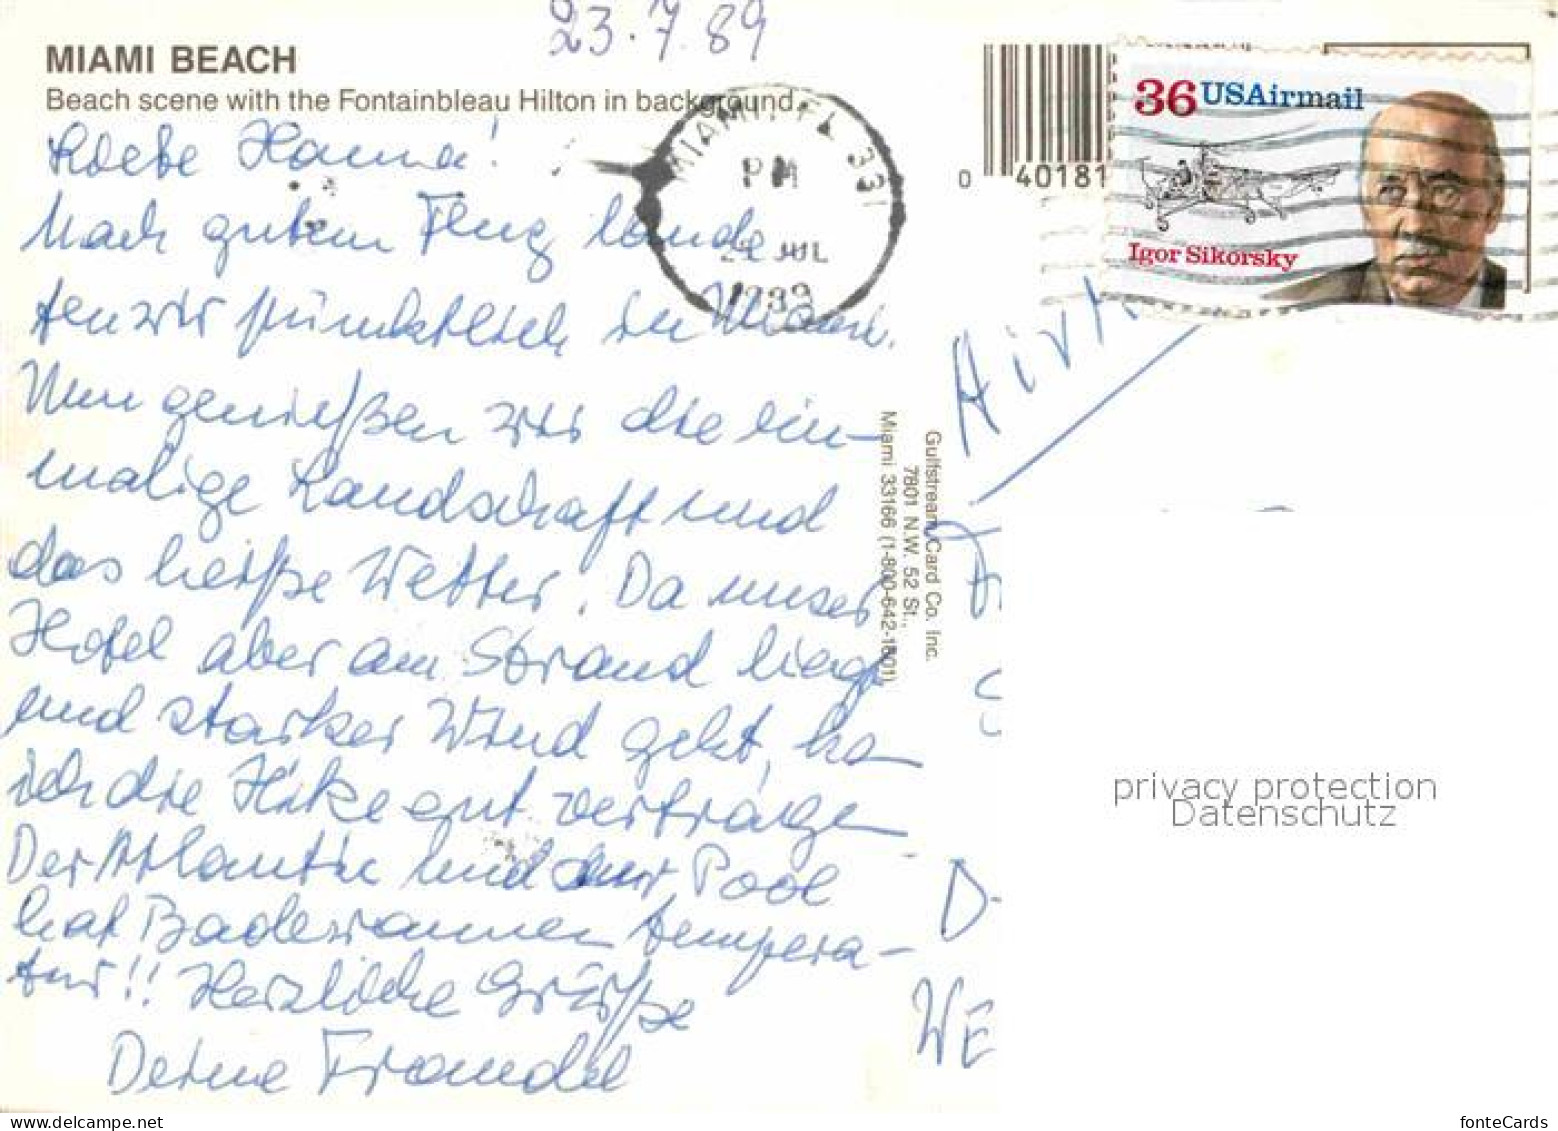 23.7.89
MIAMI BEACH
Beach scene with the Fontainbleau Hilton in background.
Liebe Hanna!
Nach gutem Flug lande
ten wir pünktlich in Miami.
Nun genießen wir die ein-
malige Landschaft und
das heiße Wetter. Da unser
Hotel aber am Strand liegt
und starker Wind geht, ka
ich die Hitze gut vertragen
Der Atlantic und der Pool
hat Badewannen tempera-
tur!! Herzliche Grüße
Deine
MIAMI, FL 331
PM
JUL
1989
0 40181
36 USAirmail
Igor Sikorsky
Gulfstream Card Co. Inc.
7801 N.W. 52 St.,
Miami 33166 (1-800-642-1601)
D-
WE
privacy protection
Datenschutz
akpool.co.uk
fonteCards